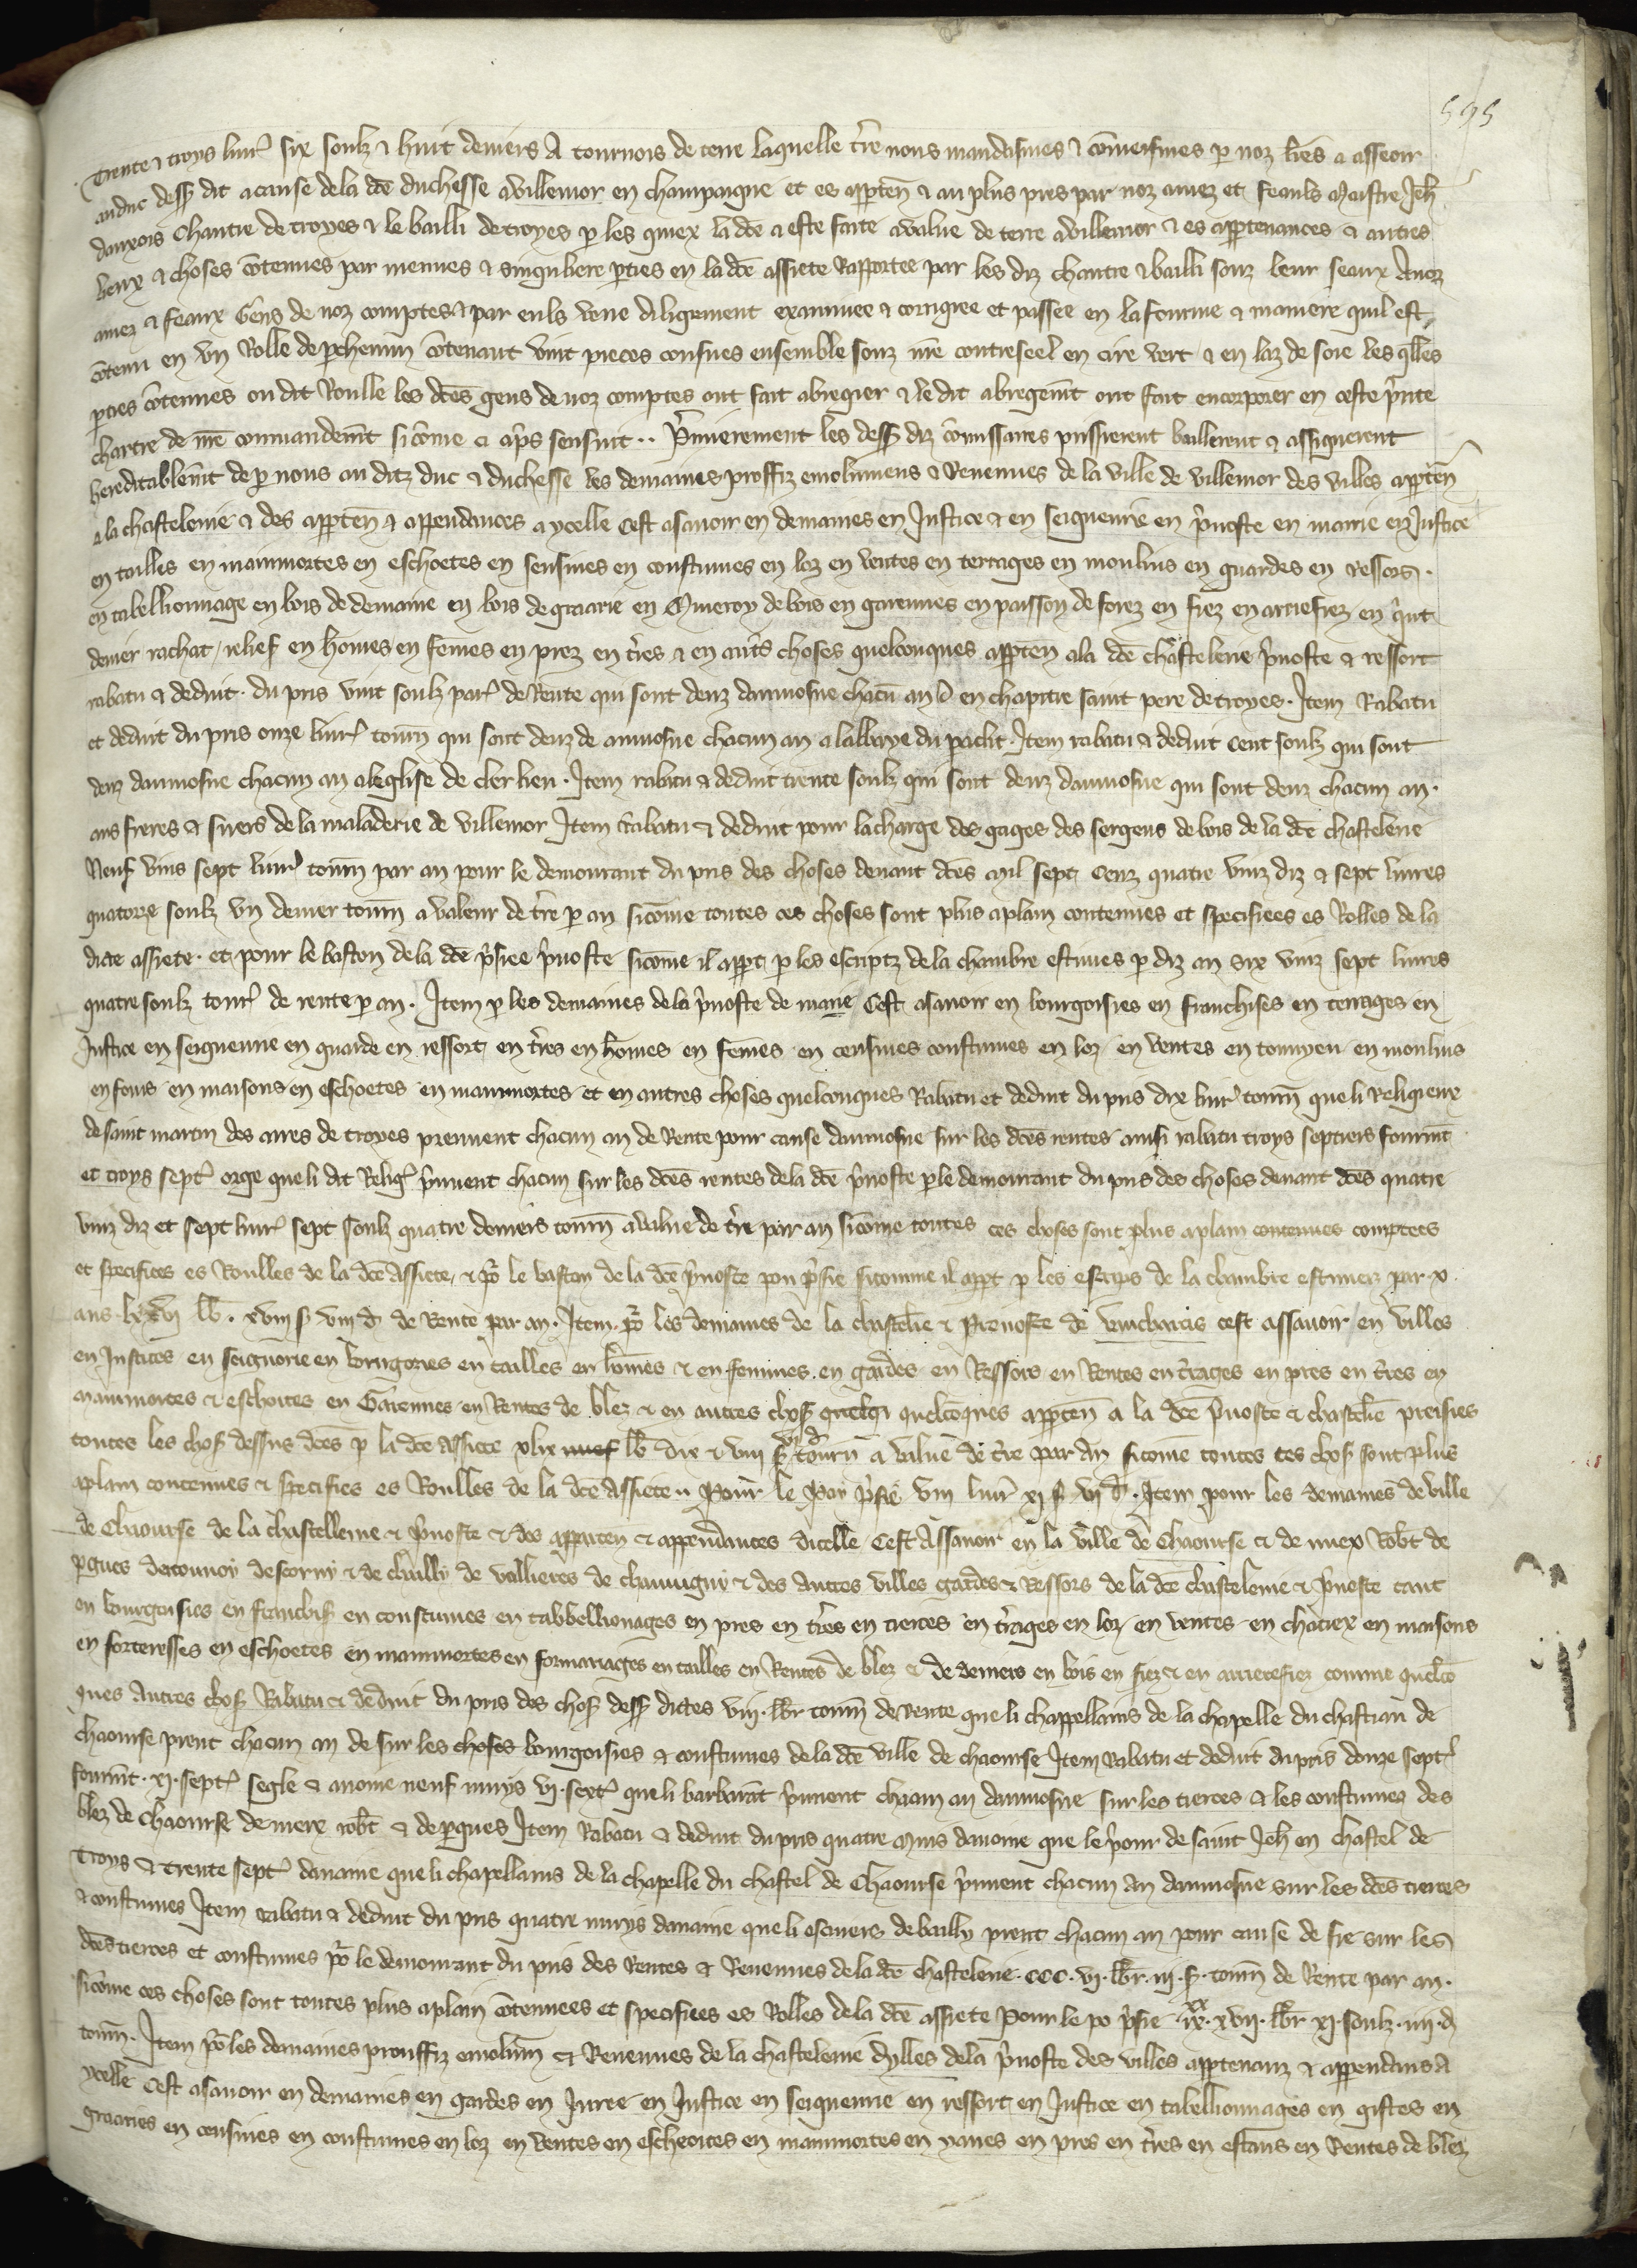 595
Trente & troys livr̃ six soulz & huit deniers A tournois de terre laquelle t̃re nous mandasmes & cōmeismes p noz lr̃es a asseoir
auduc dess dit acause dela dc̄e duchesse avillemor en champaigne et es apptēn & au plus pres par noz amez et feauls Maistre Jeh̄
dauxois Chantre de troyes & le bailli de troyes p les quiex la dc̄e a este faite avalue de terre avillemor & es appartenances & autres
leux & choses cōtenues par menues & singuliere pties en la dc̄e assiete Rapportee par les diz chantre & bailli souz leur seaux Anoz
amez & feaux Gens de noz comptes & par euls veue diligemment examinee & corrigiee et passee en la fourme & maniere quil est
cōtenu en vn Rolle de pchemin cōtenant vint pieces consues ensemble souz nr̄e contreseel en cire vert & en laz de soie les qlles
pties cōtenues ou dit Roulle les dc̄es gens de noz comptes ont fait abregier & ledit abregem̄t ont fait encorporer en ceste p̃nte
chartre de nr̄e commandem̄t sicōme ci ap̃s sensuit .. P̃mierement les dess diz cōmissaires pnssierent baillerent & assignerent
hereditablem̄t de p nous au ditz duc & duchesse les demaines proffiz emolumens & Revenues de la ville de villemor des villes apptēn
a la chastelenie & des apptēn & appendances a ycelle Cest asavoir en demaines en Justice & en seigneurie en p̃voste en mairie en Justice
en tailles en mainmortes en eschoetes en sensives en coustumes en loz en ventes en terrages en moulins en guardes en ressors.
en tabellionnage en bois de demaine en bois de graarie en Queroy debois en garennes en paisson de forez en fiez en arrierefiez en q̃nt
denier rachat relief en hōmes en fēmes en prez en t̃res & en aut̃s choses quelconques apptēn ala dc̄e chastelerie p̃voste & ressort
rabatu & deduit. du pris vint soulz par̃ de Rente qui sont deuz daumosne chacū an A en chapitre saint pere de troyes. Item Rabatu
et deduit du pris onze livr̃ tourn̄ qui sont deuz de aumosne chacun an a labbaye du paclit. Item rabatu & deduit Cent soulz qui sont
deuz daumosne chacun an aleglise de cler lieu. Item rabatu & deduit trente soulz qui sont deuz daumosne qui sont deuz chacun an.
aus freres & suers de la maladerie de villemor Item rabatu & deduit pour lacharge des gages des sergens de bois de la dc̄e chastelerie
Neuf vins sept livr̃ tourn̄ par an pour le demourant du pris des choses devant dc̄es mil sept Cenz quatre vinz diz & sept livres
quatorze soulz vn denier tourn̄ avaleur de t̃re p an sicōme toutes ces choses sont plus aplain contenues et specifiees es Rolles de la
dicte assiete. et pour le baston de la dc̄e p̃siee p̃voste sicōme il appt p les escriptz de la chambre estimes p diz an six vinz sept livres
quatre soulz tour̃ de rente p an. Item p les demaines de la p̃voste de marie Cest asavoir en bourgoisies en franchises en terrages en
Justice en seigneurie en guarde en ressort en t̃res en hōmes en fēmes en censives coustumes en loz en ventes en tonnyeu en moulins
en fours en maisons en eschoetes en mainmortes et en autres choses quelconques Rabatu et deduit du pris dix livr̃ tourn̄ que li Religieux
de saint martin des aires de troyes prennent chacun an de Rente pour cause daumosne sur les dc̄es rentes ainsi rabatu troys septiers fourm̄t
et troys sept̃ orge que li dit Relig̃ p̃nnent chacun sur les dc̄es rentes de la dc̄e p̃voste p le demourant du pris des choses devant dc̄es quatre
vinz diz et sept livr̃ sept soulz quatre deniers tourn̄ avalue de t̃re par an sicōme toutes ces choses sont plus aplain contenues comptees
et specifiees es Roulles de la dc̄e Assiete, & pō le baston de la dc̄e p̃voste pou p̃sie sicomme il appt p les escrips de la chambre estimez par x
ans lxxvi lb̄. xviii s viii d̄ de Rente par an. Item. pō les demaines de la chastelē & Prevoste de vauchaucis cest assavoir en villes
en Justices en seignorie en bourgoies en tailles en hōmes & en femmes. en gardes en Ressors en Rentes en t̃rages en pres en t̃res en
mainmortes & eschoites en Garennes en Rentes de blez & en autres chos̃ quelq̄ quelcōques apptēn a la dc̄e p̃voste & chastelē preisies
toutes les chos̃ dessus dc̄es p la dc̄e assiete xlix neuf lb̄ dix & viii s̃ vi d tourn̄ a value de t̃re par an sicōme toutes ces chos̃ sont plus
aplain contenues & specifies es Roulles de la dc̄e Assiete .. Pour le Poy p̃sie viii livr̃ xi s vi d̄. Item pour les demaines de ville
de Chaourse de la chastellenie & p̃voste & des apparten & appendances dicelle Cest Assavoir en la ville de Chaourse & de mex Robt de
pgues detounoy descorny & de chailly de vallieres de chamugny & des Autres villes gardes & Ressors de la dc̄e chastelenie & p̃voste tant
en bourgoisies en franchis̃ en coustumes en tabbellionages en pres en t̃res en tierces en t̃rages en loz en ventes en chatiex en maisons
en forteresses en eschoetes en mainmortes en formariages en tailles en Rentes de blez & de deniers en bois en fiez & en arrierefiez comme quelcō
ques Autres chos̃ Rabatu & deduit du pris des chos̃ dess dictes viii. lb̄r tourn̄ de Rente que li chappellains de la chapelle du chastiau de
chaourse prent chacun an de sur les choses bourgoisies & coustumes de la dc̄e ville de chaourse Item Rabatu et deduit du pris donze sept̃
fourm̄t. xi. sept̃ segle & avoine neuf muys vi. sext̃ que li barbarāt p̃nnent chacun an daumosne sur les tierces & les coustumez des
blez de Chaourse de mere robt̄ & de pgues Item Rabatu & deduit du pris quatre Muis davoine que le p̃our de saint Jeh̄ en chastel de
Troys & trente sept̃ davaine que li chapellains de la chapelle du chastel de Chaourse p̃nnent chacun an daumosne sur les dc̄es tierces
& coustumes Item rabatu & deduit du pris quatre muys davaine que li escuiers de bailly prent chacun an pour cause de fie sur les
dc̄es tierces et coustumes pō le demourant du pris des Rentes & Revenues de la dc̄e chastelerie. CCC. vi. lb̄r. iii. s̃. tourn̄ de Rente par an.
sicōme ces choses sont toutes plus aplain cōtenuees et specifiees es Rolles de la dc̄e assiete Pour le po p̃sie ix. xx xvii. lb̄r xi. soulz. iiii. d
tourn̄. Item pō les demaines prouffiz emolum̄ & Revenues de la chastelenie dylles de la p̃voste des villes apptenanz & appendans A
ycelle Cest asavoir en demaines en gardes en Juree en Justice en seigneurie en ressort en Justice en tabellionnages en gistes en
graaries en censives en coustumes en loz en ventes en escheoites en mainmortes en yaues en pres en t̃res en estans en Rentes de blez